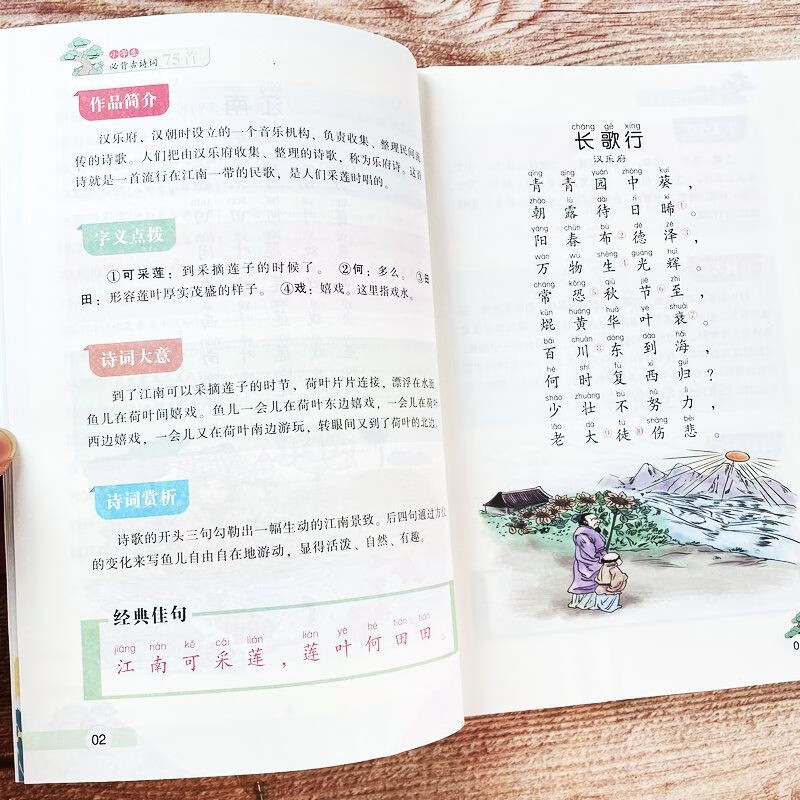 小学生
必背古诗词 75首
作品简介
汉乐府，汉朝时设立的一个音乐机构，负责收集、整理民间流
传的诗歌。人们把由汉乐府收集、整理的诗歌，称为乐府诗。这首
诗就是一首流行在江南一带的民歌，是人们采莲时唱的。
字义点拨
①可采莲：到采摘莲子的时候了。 ②何：多么。 ③田
田：形容莲叶厚实茂盛的样子。 ④戏：嬉戏。这里指戏水。
诗词大意
到了江南可以采摘莲子的时节，荷叶片片连接，漂浮在水面，
鱼儿在荷叶间嬉戏。鱼儿一会儿在荷叶东边嬉戏，一会儿在荷叶
西边嬉戏，一会儿又在荷叶南边游玩，转眼间又到了荷叶的北边。
诗词赏析
诗歌的开头三句勾勒出一幅生动的江南景致。后四句通过方位
的变化来写鱼儿自由自在地游动，显得活泼、自然、有趣。
经典佳句
jiāng nán kě cǎi lián lián yè hé tián tián
江南可采莲，莲叶何田田。
02
cháng gē xíng
长歌行
汉乐府
qīng qīng yuán zhōng kuí
青青园中葵，
zhāo lù dài rì xī
朝露待日晞①。
yáng chūn bù dé zé
阳春布②德泽③，
wàn wù shēng guāng huī
万物生④光辉。
cháng kǒng qiū jié zhì
常恐⑤秋节⑥至，
kūn huáng huā yè shuāi
焜黄华叶衰⑦。
bǎi chuān dōng dào hǎi
百川⑧东到海，
hé shí fù xī guī
何时复西归？
shào zhuàng bù nǔ lì
少壮不努力，
lǎo dà tú shāng bēi
老大⑨徒⑩伤悲。